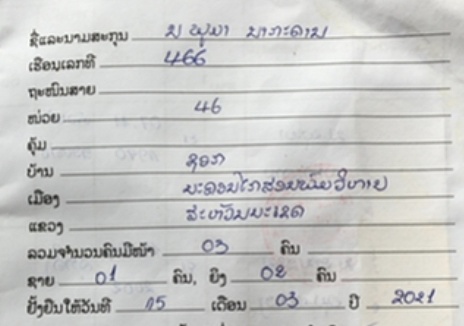 ຊື່ແລະນາມສະກຸນ ນ ພູມາ ນາກະດານ
ເຮືອນເລກທີ 466
ຖະໜົນສາຍ
ໜ່ວຍ 46
ຄຸ້ມ
ບ້ານ
ເມືອງ ນະຄອນໄກສອນພົມວິຫານ
ແຂວງ ສະຫວັນນະເຂດ
ລວມຈຳນວນຄົນມີໜ້າ 03 ຄົນ
ຊາຍ 01 ຄົນ, ຍິງ 02 ຄົນ
ຢັ້ງຢືນໃຫ້ວັນທີ 15 ເດືອນ 03 ປີ 2021